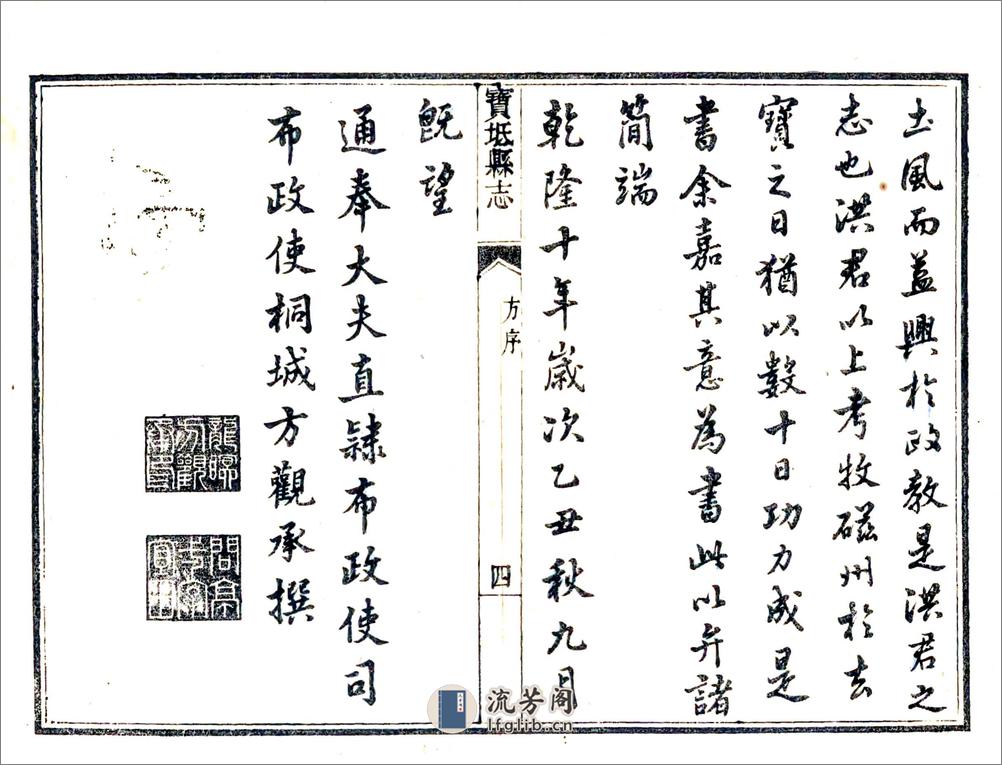 土風而益興於政教是洪君之
志也洪君以上考牧磁州於去
寳之日猶以數十日功力成是
書余嘉其意為書此以弁諸
簡端
乾隆十年歲次乙丑秋九月
寶坻縣志
方序
四
既望
通奉大夫直隸布政使司
布政使桐城方觀承撰
流芳阁
lfglib.cn